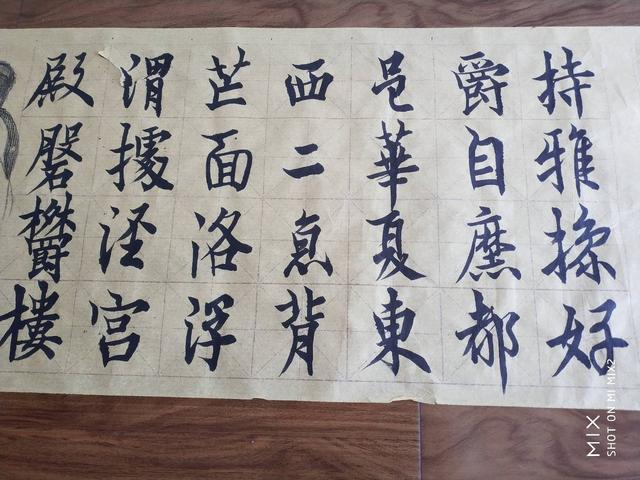 持雅操好
爵自縻都
邑華夏東
西二京背
芒面洛浮
渭據涇宫
殿磐欝樓
MIX
SHOT ON MI MIX2